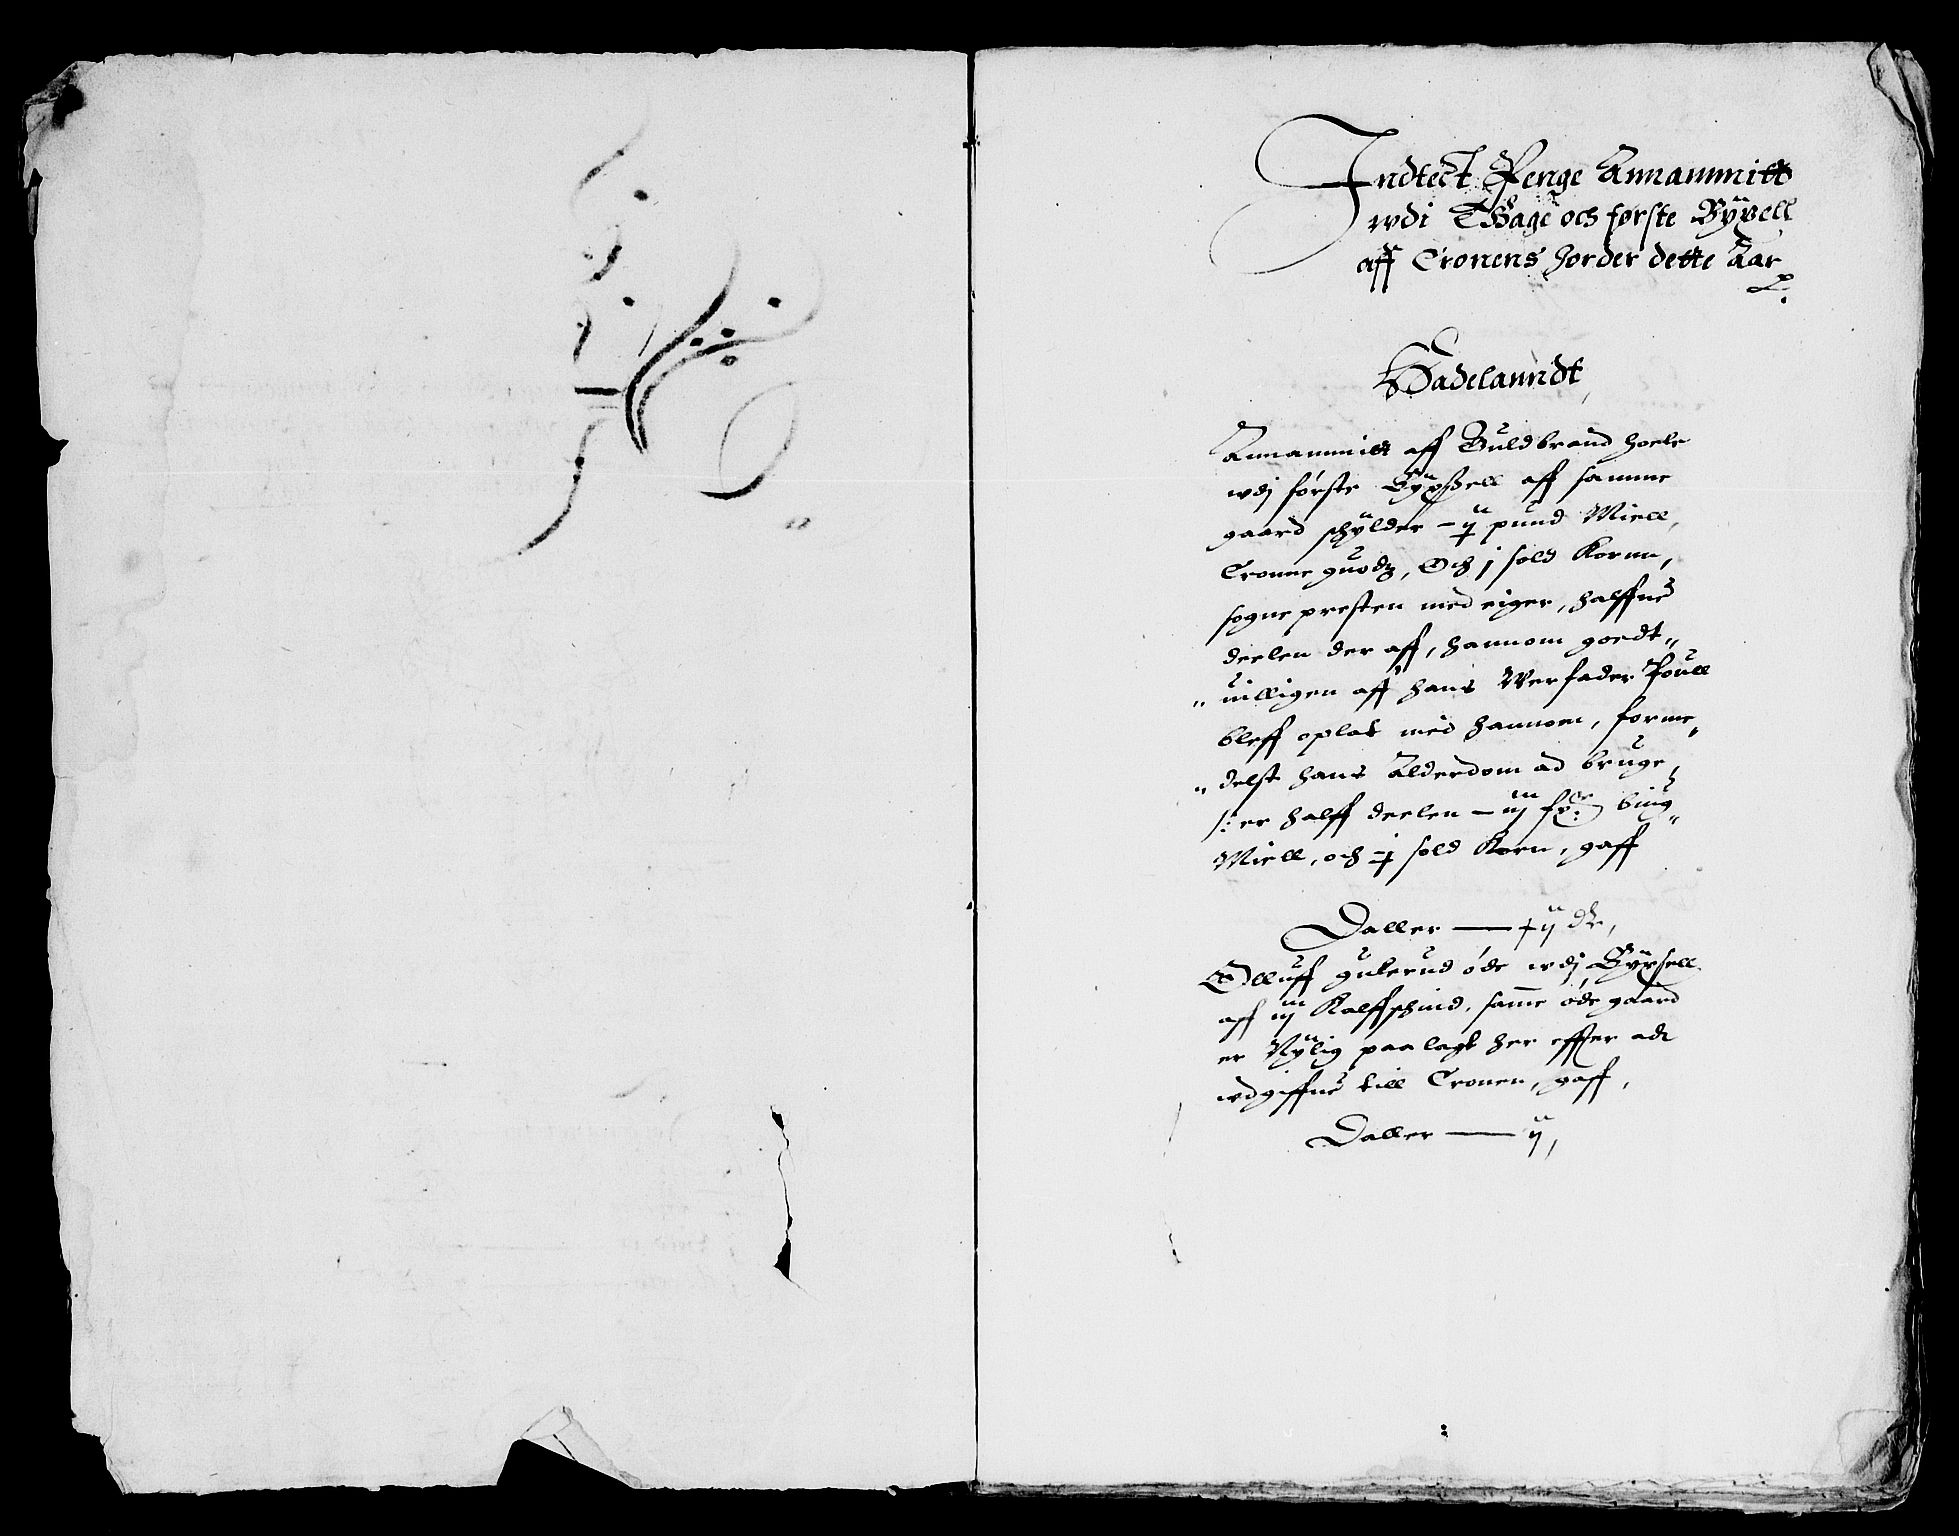 Indtect Penge Annammitt
wdi Thage och første Byxell
aff Cronens Jorder dette Aar
Hadelanndt
Annammitt aff Guldbrand Hoele
wdj første Byxsell aff samme
gaard schylder - ij pund Miell,
Cronne guodz, Och j sold Kornn,
sogne presten med eiger, halffue
deelen der aff, hannom goedt„
„ uilligen aff hans Werfader Poull
bleff oplat med hannom, forme„
„ delst hans Alderdom ad bruge,
/: er halff deelen - iij bing„
Miell, och j sold Korn, gaff
Daller — ij
Olluff guterud øde wdj Byxsell
aff iij Kalffschind, samme øde gaard
er Nylig paa lagt her effter adt
wdgiffue till Cronen, gaff,
Daller — ij,